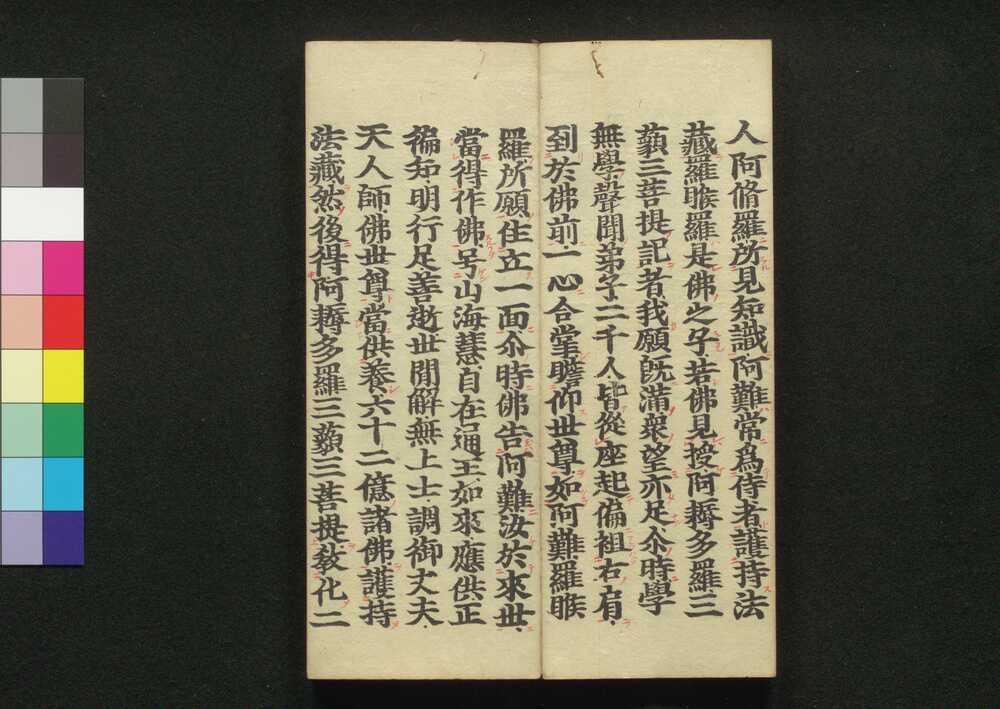 人阿脩羅所見知識阿難常爲侍者護持法
藏羅睺羅是佛之子若佛見授阿耨多羅三
藐三菩提記者我願既滿衆望亦足尒時學
無學聲聞弟子二千人皆從座起偏袒右肩
到於佛前一心合掌瞻仰世尊如阿難羅睺
羅所願住立一面尒時佛告阿難汝於來世
當得作佛号山海慧自在通王如來應供正
徧知明行足善逝世閒解無上士調御丈夫
天人師佛世尊當供養六十二億諸佛護持
法藏然後得阿耨多羅三藐三菩提敎化二